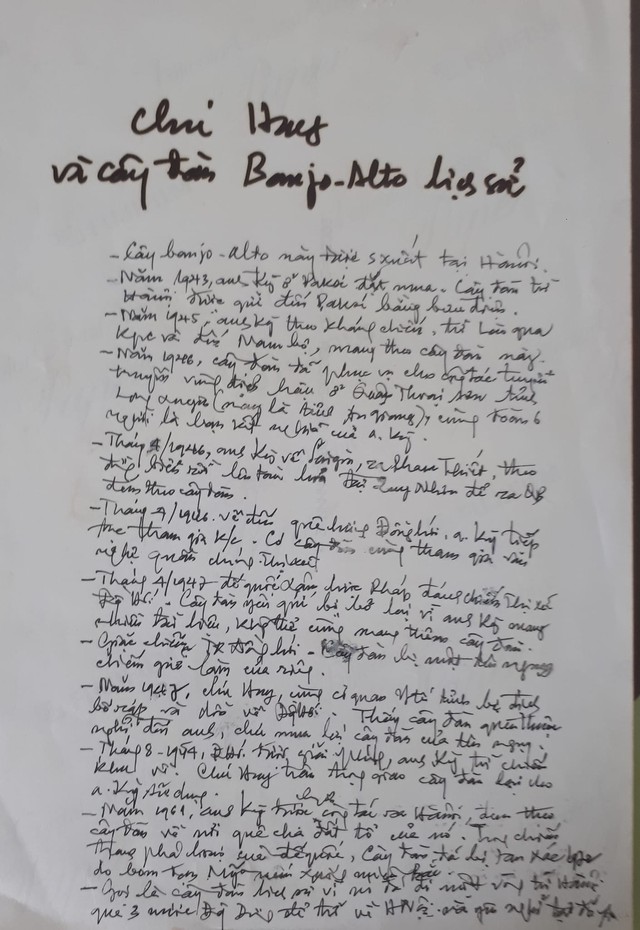 Chú Hưng
và cây đàn Banjo-Alto lịch sử
- Cây banjo-Alto này được s xuất tại Hànội.
- Năm 1943, anh Kỳ ở Paksé đặt mua. Cây đàn từ
Hànội được gửi đến Paksé bằng bưu điện.
- Năm 1945, anh Kỳ theo kháng chiến, từ Lào qua
Kpc và đến Nam bộ, mang theo cây đàn này.
- Năm 1946, cây đàn đã phục vụ cho công tác tuyên
truyền vùng địch hậu ở Thoại Sơn tỉnh
Long Xuyên (nay là tỉnh An giang), cùng toán 6
người là bạn của a. Kỳ.
- Tháng /1946, anh Kỳ về Sàigòn, ra Phan Thiết, theo
đường biển rồi lên tàu lửa tại Quy Nhơn để ra QB
đem theo cây đàn.
- Tháng /1946 về đến quê hương Đồng hới, a. Kỳ tiếp
tục tham gia k/c. Cây đàn cùng tham gia văn
nghệ quần chúng Thị xã
- Tháng 4/1947 đế quốc xâm lược Pháp đánh chiếm Thị xã
Đg Hới. Cây đàn yêu quí bị bỏ lại vì anh Kỳ mang
nhiều tài liệu, không thể cùng mang thêm cây đàn.
- Giặc chiếm Tx Đồng hới - Cây đàn bị một tên ngụy
chiếm giữ làm của riêng.
- Năm 1947, chú Hưng, cùng cơ quan Y tế tỉnh bị địch
bố ráp và đưa về Đg Hới. Thấy cây đàn quen thuộc
nghĩ đến anh, chú mua lại cây đàn của tên ngụy.
- Tháng 8-1954, Đ.Hới được giải phóng, anh Kỳ từ chiến
khu về. Chú Hưng trân trọng giao cây đàn lại cho
a. Kỳ sử dụng.
- Năm 1961, anh Kỳ được chuyển công tác ra Hànội, đem theo
cây đàn về nơi quê cha đất tổ của nó. Trong chiến
tranh phá hoại của đế quốc, Cây đàn đã bị tan xác
do bom Mỹ ném xuống
- Gọi là cây đàn lịch sử vì nó đã đi một vòng từ Hànội
qua 3 nước Đg Dương để trở về HNội và